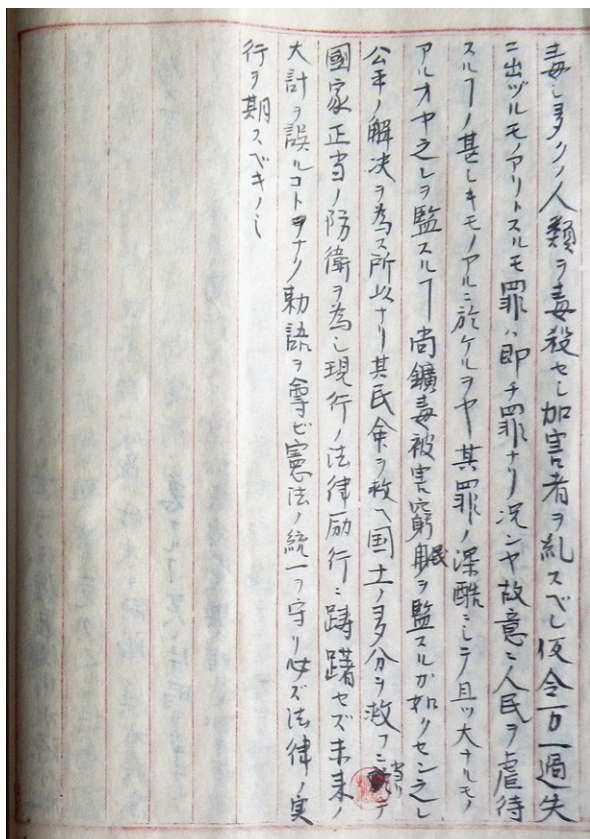 毒シ多クノ人類ヲ毒殺セシ加害者ヲ糺スベシ仮令万一過失
ニ出ヅルモノアリトスルモ罪ハ即チ罪ナリ況ンヤ故意ニ人民ヲ虐待
スルヿノ甚シキモノアルニ於ケルヲヤ其罪ノ深酷ニシテ且ツ大ナルモノ
アルオヤ之レヲ監スルヿ尚鑛毒被害窮民ヲ監スルガ如クセン之レ
公平ノ解决ヲ為ス所以ナリ其民命ヲ救ヘ国土ノ多分ヲ救フニ当リテ
國家正当ノ防衛ヲ為シ現行ノ法律励行ニ躊躇セズ未来ノ
大計ヲ誤ルコトヲナク勅語ヲ尊ビ憲法ノ統一ヲ守リ必ズ法律ノ実
行ヲ期スベキノミ